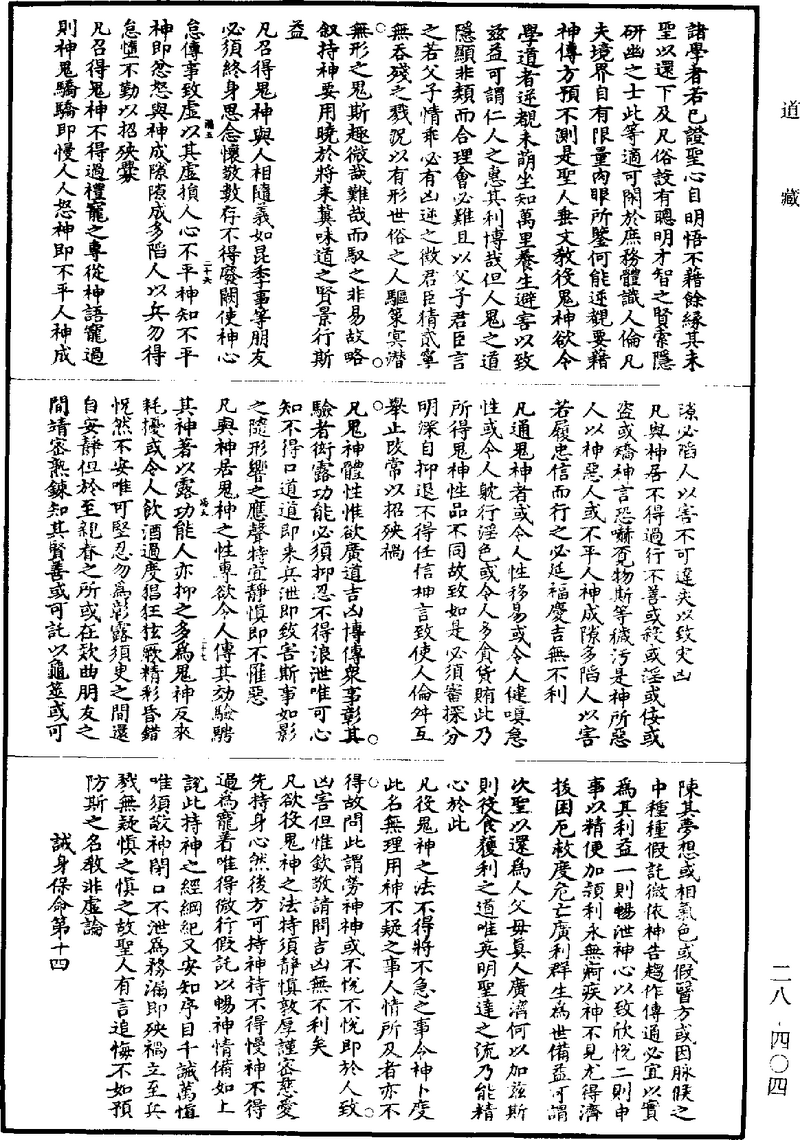 道藏
諸學者若已證聖心自明悟不藉餘緣其未
聖以還下及凡俗設有聰明才智之賢索隱
研幽之士此等適可閑於庶務體識人倫凡
夫境界自有限量肉眼所鑒何能逆覩要藉
神傳方預不測是聖人垂文教役鬼神欲令
學道者逆覩未萌坐知萬里養生避害以致
茲益可謂仁人之惠其利博哉但人鬼之道
隱顯非類而合理會必難且以父子君臣言
之若父子情乖必有凶逆之徵君臣猜貳寧
無吞殘之戮況以有形世俗之人驅策冥潛
無形之鬼斯趣微哉難哉而馭之非易故略
叙持神要用曉於將來冀味道之賢景行斯
益
凡召得鬼神與人相隨義如昆季事等朋友
必須終身思念懷敬數存不得廢闕使神心
怠傳事致虛以其虛損人心不平神知不平
神即忿怒與神成隙隙成多陷人以兵勿得
怠墮不勤以招殃釁
凡召得鬼神不得過禮寵之專從神語寵過
則神鬼驕驕即慢人人怒神即不平人神成
隙必陷人以害不可違失以致灾凶
凡與神居不得過行不善或殺或淫或佞或
盜或矯神言恐嚇覓物斯等穢污是神所惡
人以神惡人或不平人神成隙多陷人以害
若履忠信而行之必延福慶吉無不利
凡通鬼神者或令人性移易或令人健嗔急
性或令人躭行淫色或令人多貪貨賄此乃
所得鬼神性品不同故致如是必須審探分
明深自抑退不得任信神言致使人倫舛互
舉止改常以招殃禍
凡鬼神體性惟欲廣道吉凶博傳衆事彰其
驗者衒露功能必須抑忍不得浪泄唯可心
知不得口道道即來兵泄即致害斯事如影
之隨形響之應聲特宜靜慎即不罹惡
凡與神居鬼神之性專欲令人傳其効驗騁
其神著以露功能人亦抑之多爲鬼神反來
耗擾或令人飲酒過度猖狂抂厥精彩昏錯
怳然不安唯可堅忍勿爲彰露須臾之間還
自安靜但於至親眷之所或在欵曲朋友之
間靖密熟鍊知其賢善或可託以龜筮或可
陳其夢想或相氣色或假醫方或因脉候之
中種種假託微依神告趨作傳通必宜以實
爲其利益一則暢泄神心以致欣悅二則申
事以精便加穎利永無痾疾神不見尤得濟
拔困厄救度危亡廣利群生爲世備益可謂
次聖以還爲人父母真人廣濟何以加茲斯
則役食獲利之道唯英明聖達之流乃能精
心於此
凡役鬼神之法不得將不急之事令神卜度
此名無理用神不疑之事人情所及者亦不
得故問此謂勞神神或不悅不悅即於人致
凶害但惟欽敬請問吉凶無不利矣
凡欲役鬼神之法持須靜慎敦厚謹密慈愛
先持身心然後方可持神待不得慢神不得
過爲寵者唯得微行假託以暢神情備如上
說此持神之經綱紀又安知序目千誡萬慎
唯須敬神閉口不泄爲務漏即殃禍立至兵
戮無疑慎之慎之故聖人有言追悔不如預
防斯之名敎非虛論
誡身保命第十四
二八-四〇四